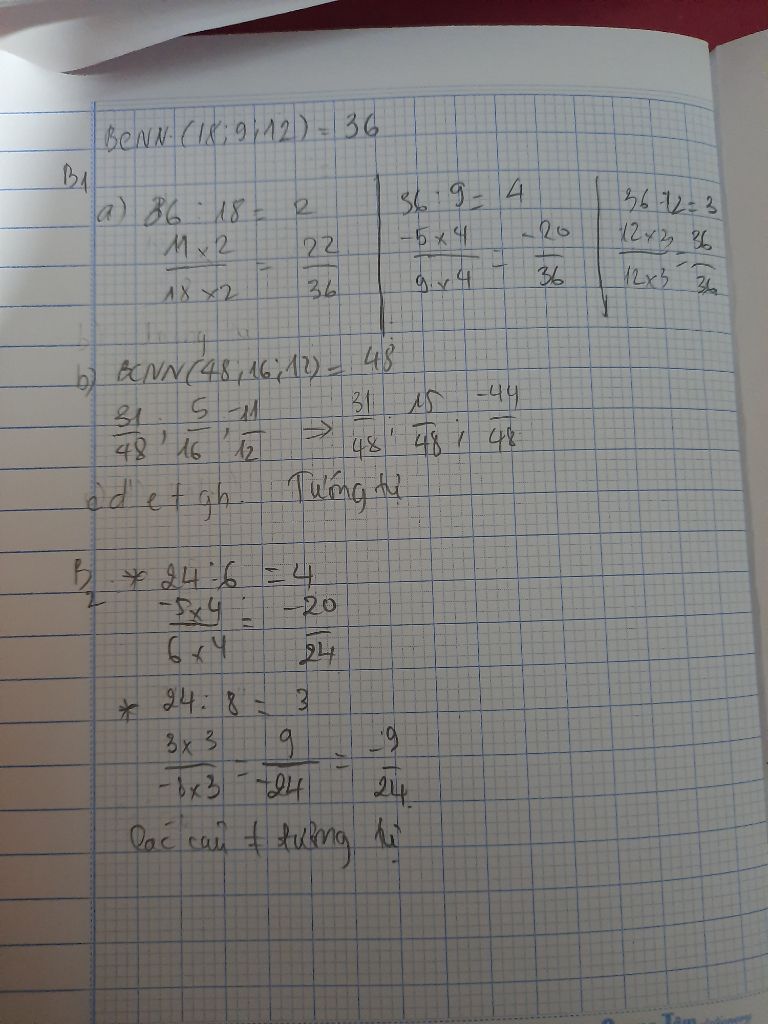 BCNN (18; 9; 12) = 36
B1
a) 36 : 18 = 2
11 x 2 / 18 x 2 = 22 / 36
36 : 9 = 4
-5 x 4 / 9 x 4 = -20 / 36
36 : 12 = 3
12 x 3 / 12 x 3 = 36 / 36
b) BCNN (48; 16; 12) = 48
31/48 ; 5/16 ; -11/12 => 31/48 ; 15/48 ; -44/48
c d e f g h. Tương tự
B2 * 24 : 6 = 4
-5 x 4 / 6 x 4 = -20 / 24
* 24 : 8 = 3
3 x 3 / -8 x 3 = 9 / -24 = -9 / 24
Các câu ≠ tương tự